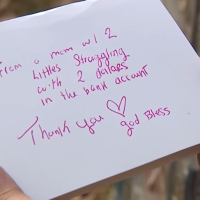 From a mom w/ 2
Littles Struggling
with 2 dollars
in the bank account
Thank you ♡
God Bless